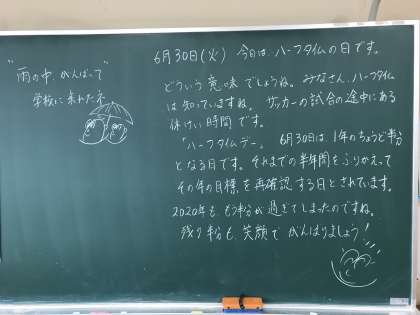 "雨の中 がんばって"
学校に来れたネ
6月30日(火) 今日は、ハーフタイムの日です。
どういう意味でしょうね。みなさん、ハーフタイム
は知っていますね。サッカーの試合の途中にある
休けい時間です。
「ハーフタイムデー」 6月30日は、1年のちょうど半分
となる日です。それまでの半年間をふりかえって
その年の目標を再確認する日とされています。
2020年も、もう半分が過ぎてしまったのですね。
残り半分も、笑顔でがんばりましょう!